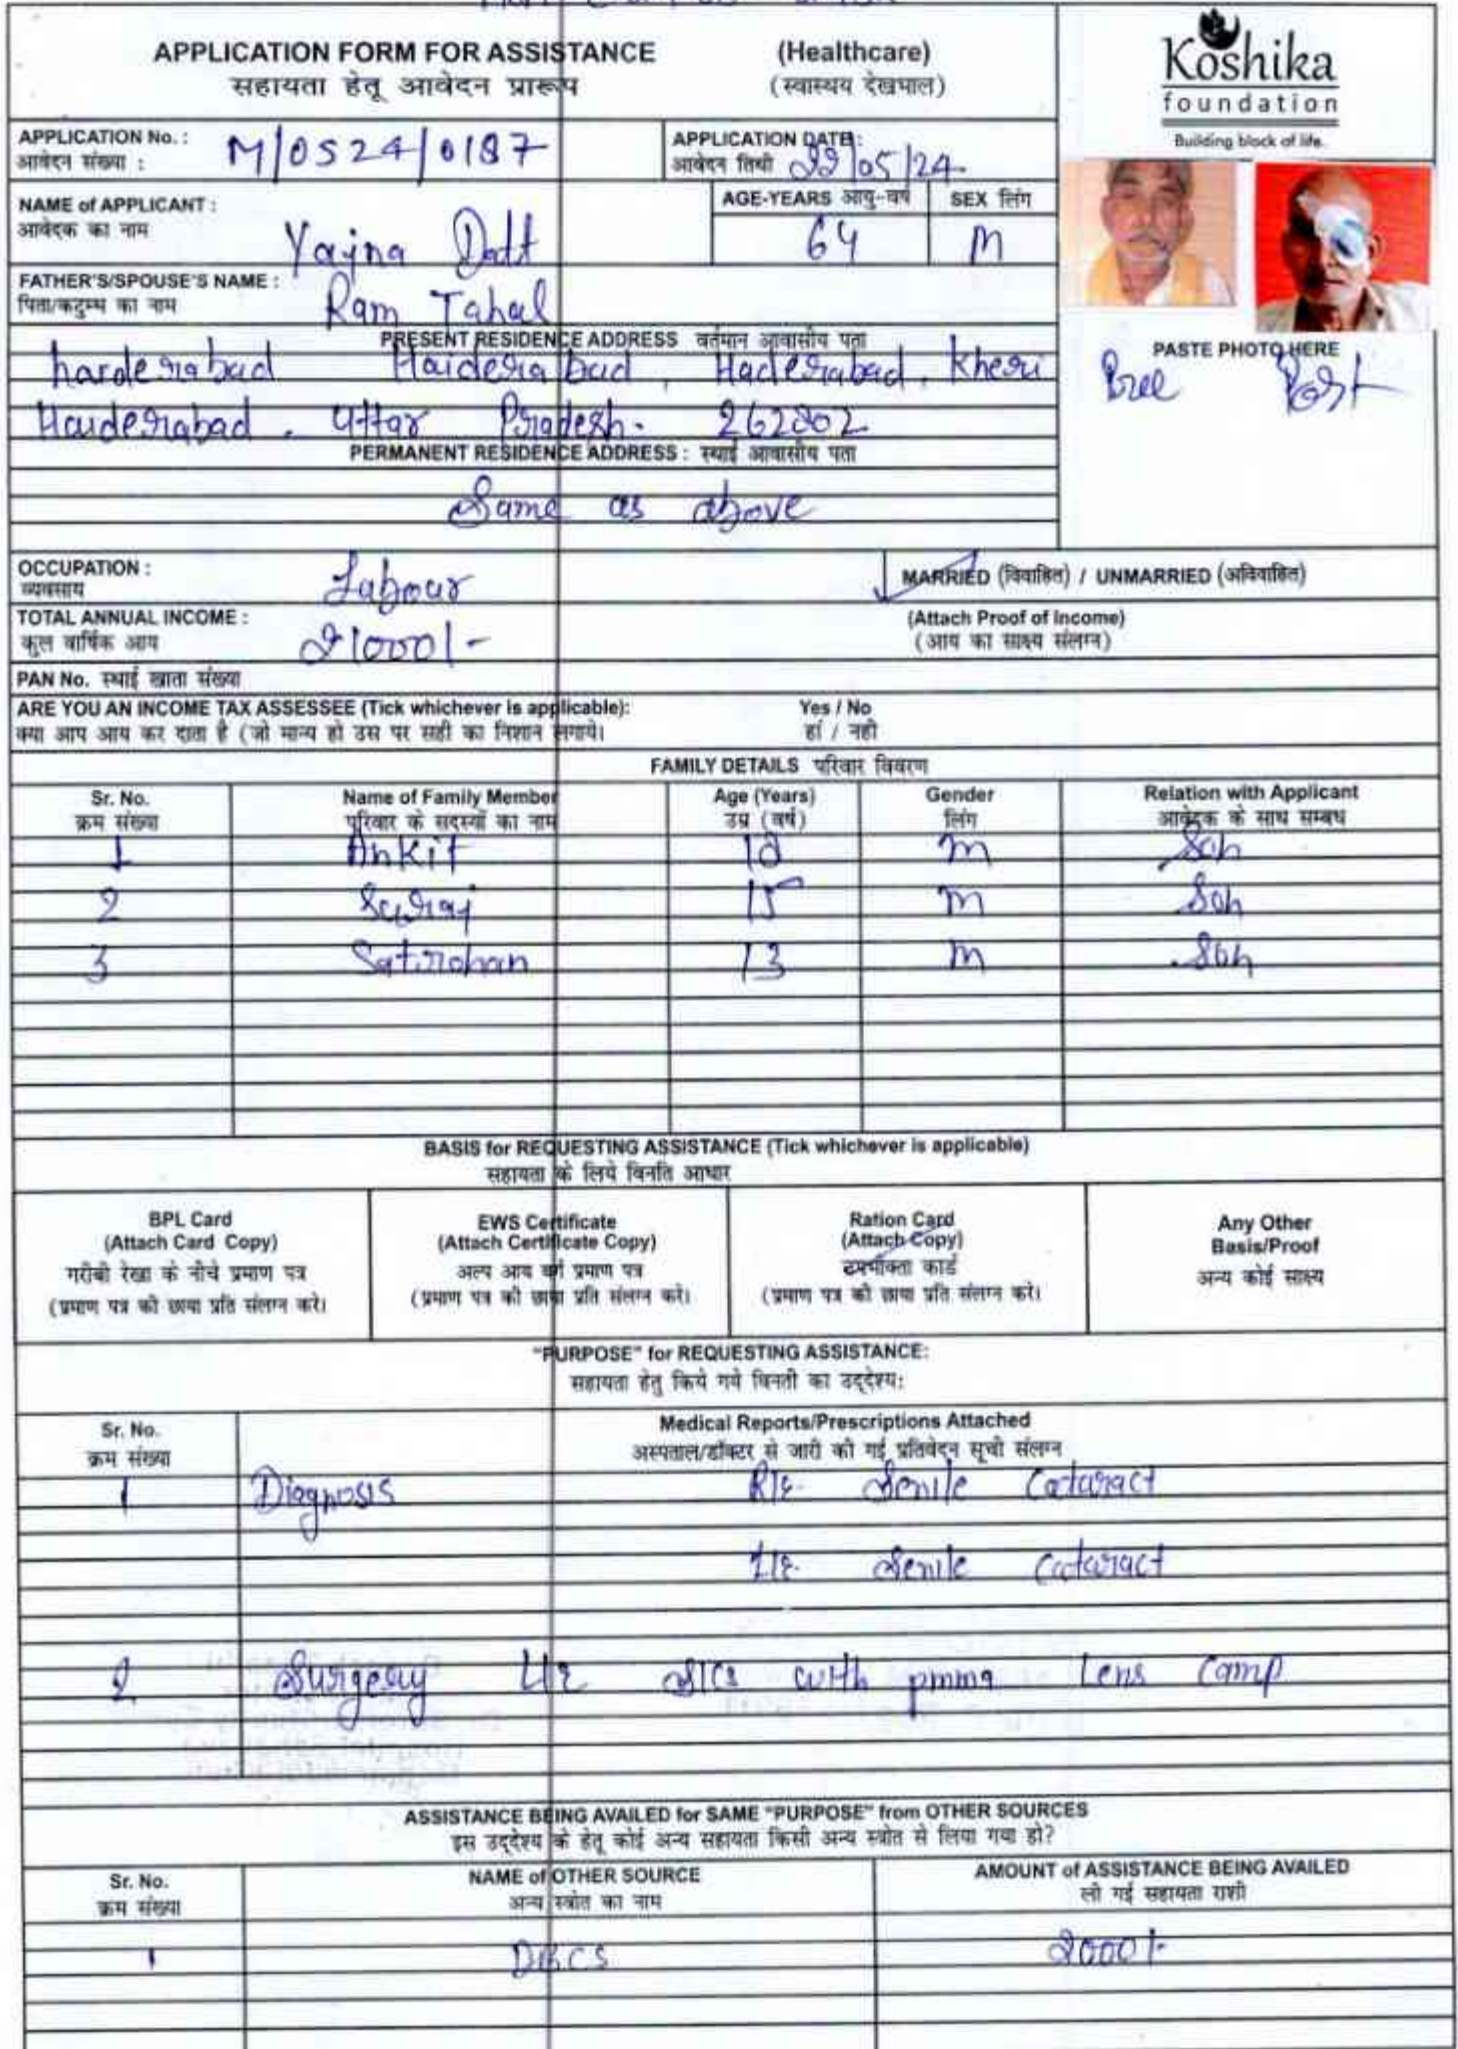 APPLICATION FORM FOR ASSISTANCE (Healthcare)
सहायता हेतू आवेदन प्रारूप (स्वास्थय देखभाल)
Koshika
foundation
Building block of life.
APPLICATION No. : M/0524/0187
आवेदन संख्या :
APPLICATION DATE :
आवेदन तिथी 22/05/24
NAME of APPLICANT :
आवेदक का नाम Yajna Datt
AGE-YEARS आयु-वर्ष SEX लिंग
64 M
FATHER'S/SPOUSE'S NAME :
पिता/कटुम्ब का नाम Ram Tahal
PRESENT RESIDENCE ADDRESS वर्तमान आवासीय पता
harderabad Haiderabad, Haderabad, Kheri
Haiderabad. Uttar Pradesh. 262802
PERMANENT RESIDENCE ADDRESS : स्थाई आवासीय पता
Same as above
PASTE PHOTO HERE
Pree Post
OCCUPATION :
व्यवसाय Labour
MARRIED (विवाहित) / UNMARRIED (अविवाहित)
TOTAL ANNUAL INCOME :
कुल वार्षिक आय 21000/-
(Attach Proof of Income)
(आय का साक्ष्य संलग्न)
PAN No. स्थाई खाता संख्या
ARE YOU AN INCOME TAX ASSESSEE (Tick whichever is applicable): Yes / No
क्या आप आय कर दाता है (जो मान्य हो उस पर सही का निशान लगाये। हां / नही
FAMILY DETAILS परिवार विवरण
Sr. No. Name of Family Member Age (Years) Gender Relation with Applicant
क्रम संख्या परिवार के सदस्यों का नाम उम्र (वर्ष) लिंग आवेदक के साथ सम्बध
1 Ankit 18 m Son
2 Suraj 15 m Son
3 Satirohan 13 m Son
BASIS for REQUESTING ASSISTANCE (Tick whichever is applicable)
सहायता के लिये विनति आधार
BPL Card
(Attach Card Copy)
गरीबी रेखा के नीचे प्रमाण पत्र
(प्रमाण पत्र की छाया प्रति संलग्न करे।
EWS Certificate
(Attach Certificate Copy)
अल्प आय वर्ग प्रमाण पत्र
(प्रमाण पत्र की छाया प्रति संलग्न करे।
Ration Card
(Attach Copy)
उपभोक्ता कार्ड
(प्रमाण पत्र की छाया प्रति संलग्न करे।
Any Other
Basis/Proof
अन्य कोई साक्ष्य
"PURPOSE" for REQUESTING ASSISTANCE:
सहायता हेतु किये गये विनती का उद्देश्य:
Sr. No. Medical Reports/Prescriptions Attached
क्रम संख्या अस्पताल/डॉक्टर से जारी की गई प्रतिवेदन सूची संलग्न
1 Diagnosis R/E Senile Cataract
L/E Senile Cataract
2 Surgery L/E SICS with pmma Lens Camp
ASSISTANCE BEING AVAILED for SAME "PURPOSE" from OTHER SOURCES
इस उद्देश्य के हेतू कोई अन्य सहायता किसी अन्य स्त्रोत से लिया गया हो?
Sr. No. NAME of OTHER SOURCE AMOUNT of ASSISTANCE BEING AVAILED
क्रम संख्या अन्य स्त्रोत का नाम ली गई सहायता राशी
1 DBCS 2000/-